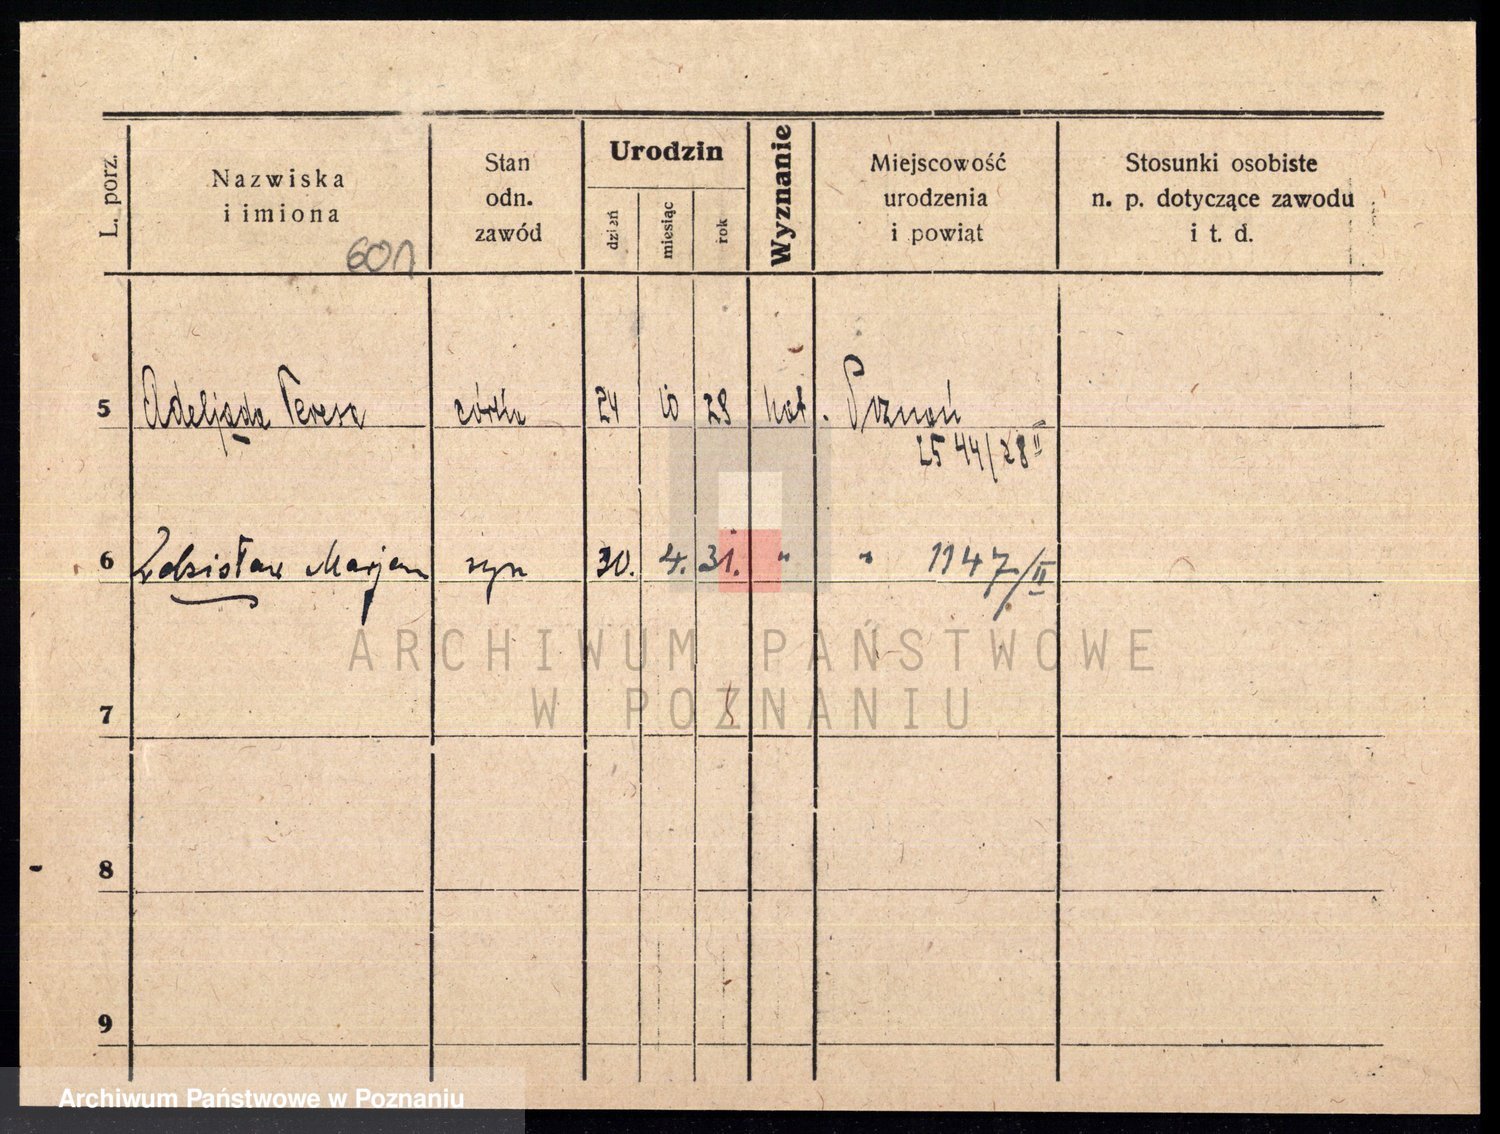 L. porz.
Nazwiska
i imiona
Stan
odn.
zawód
Urodzin
dzień
miesiąc
rok
Wyznanie
Miejscowość
urodzenia
i powiat
Stosunki osobiste
n. p. dotyczące zawodu
i t. d.
601
5 Adeljada Teresa córka 24 10 28 kat. Poznań
2544/28 II
6 Zdzisław Marjan syn 30. 4. 31. " " 1147/II
ARCHIWUM PAŃSTWOWE
W POZNANIU
7
8
9
Archiwum Państwowe w Poznaniu